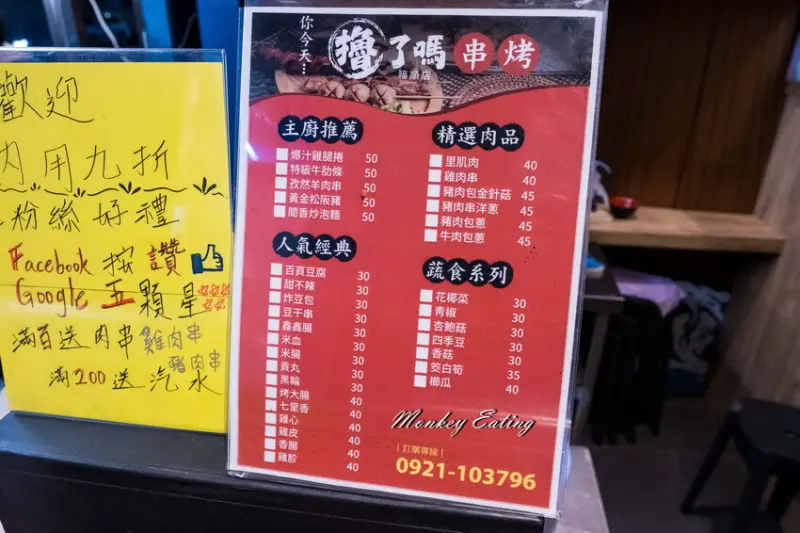 歡迎
內用九折
粉絲好禮
Facebook 按讚
Google 五顆星
滿百送肉串 雞肉串
豬肉串
滿200送汽水
你今天...
擼了嗎串烤
福順店
主廚推薦
爆汁雞腿捲 50
特級牛肋條 50
孜然羊肉串 50
黃金松阪豬 50
聞香炒泡麵 50
人氣經典
百頁豆腐 30
甜不辣 30
炸豆包 30
豆干串 30
鑫鑫腸 30
米血 30
米腸 30
貢丸 30
黑輪 30
烤大腸 40
七里香 40
雞心 40
雞皮 40
香腸 40
雞胗 40
精選肉品
里肌肉 40
雞肉串 40
豬肉包金針菇 45
豬肉串洋蔥 45
豬肉包蔥 45
牛肉包蔥 45
蔬食系列
花椰菜 30
青椒 30
杏鮑菇 30
四季豆 30
香菇 30
茭白筍 35
櫛瓜 40
Monkey Eating
|訂購專線|
0921-103796